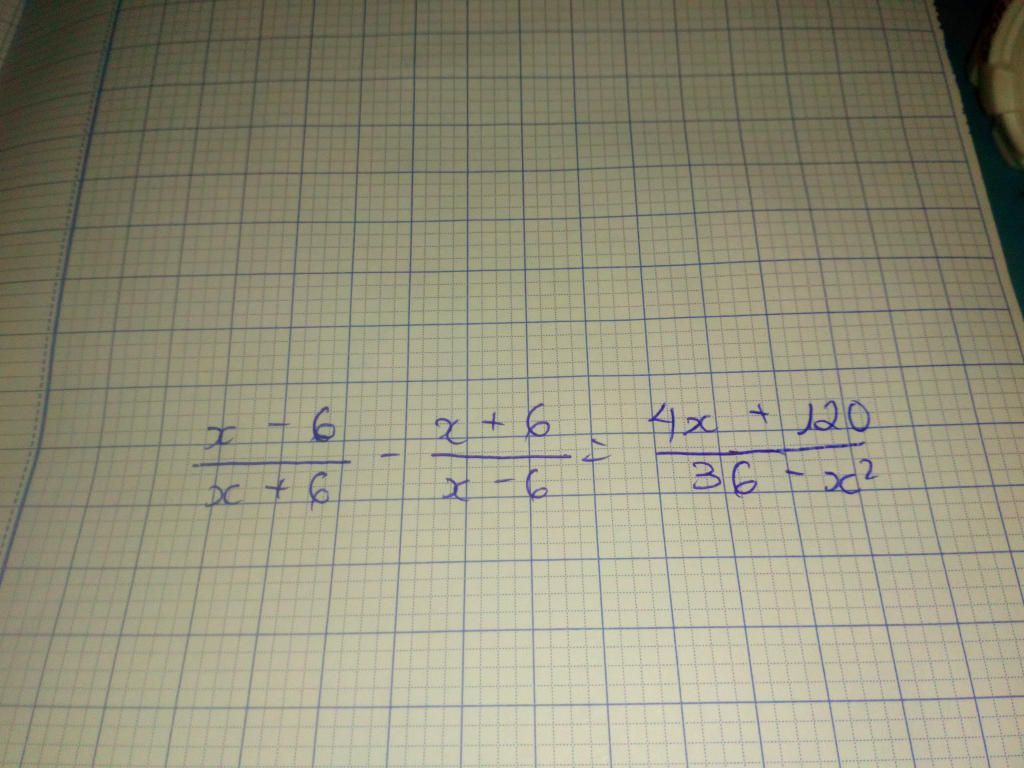 x - 6 / x + 6 - x + 6 / x - 6 = 4x + 120 / 36 - x²